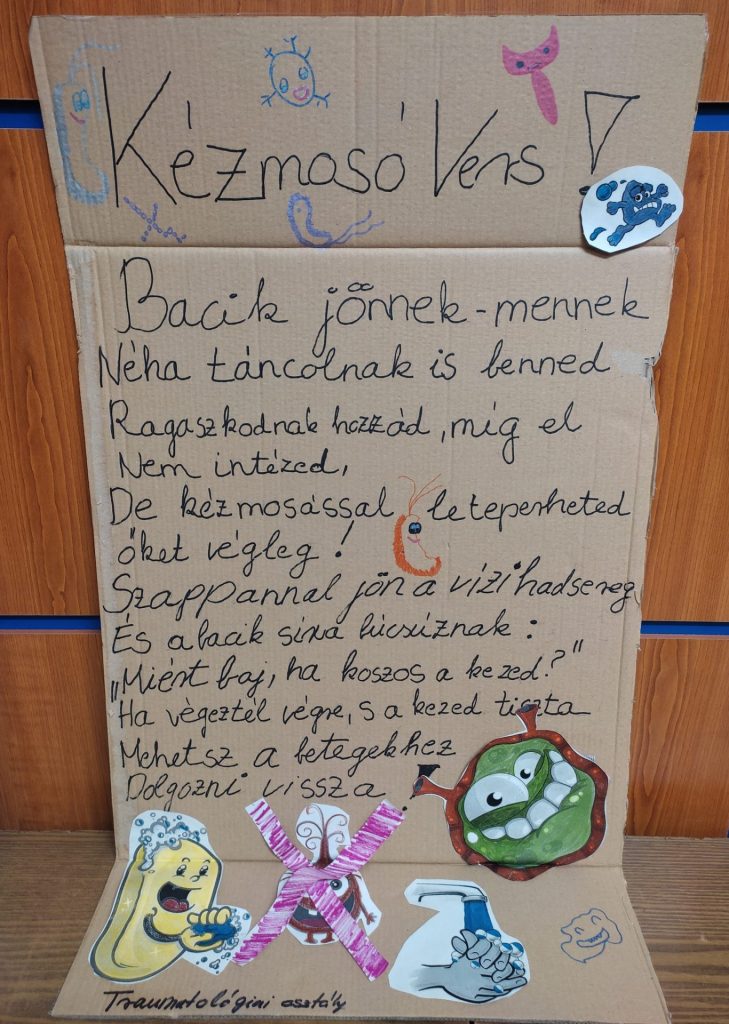 Kézmosó Vers!
Bacik jönnek-mennek
Néha táncolnak is benned
Ragaszkodnak hozzád, míg el
Nem intézed,
De kézmosással leteperheted
őket végleg!
Szappannal jön a vízi hadsereg
És a bacik sírva búcsúznak:
„Miért baj, ha koszos a kezed?"
Ha végeztél végre, s a kezed tiszta
Mehetsz a betegekhez
Dolgozni vissza!
Traumatológiai osztály